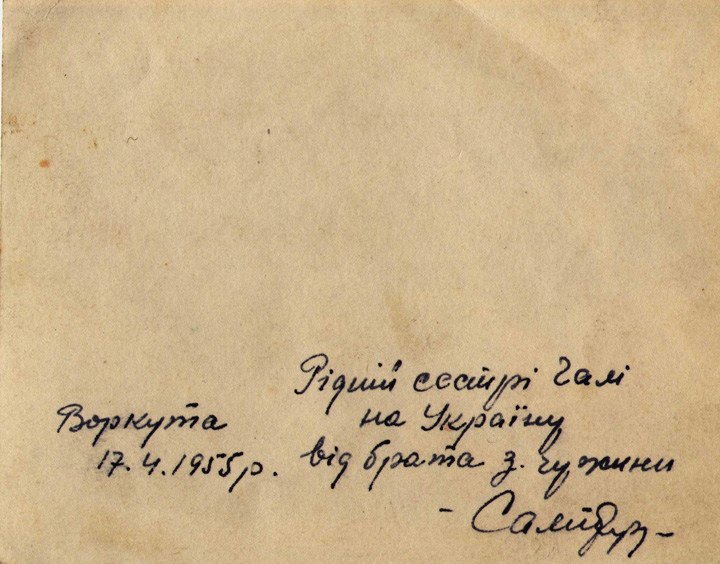 Рідній сестрі Галі
на Україну
від брата з. чужини
Воркута
17.4.1955р.